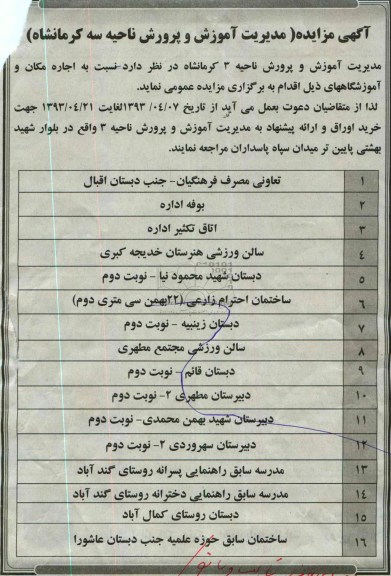 آگهی مزایده( مدیریت آموزش و پرورش ناحیه سه کرمانشاه)
مدیریت آموزش و پرورش ناحیه ۳ کرمانشاه در نظر دارد نسبت به اجاره مکان و
آموزشگاههای ذیل اقدام به برگزاری مزایده عمومی نماید.
لذا از متقاضیان دعوت بعمل می آید از تاریخ ۱۳۹۳/۰۴/۰۷ لغایت ۱۳۹۳/۰۴/۲۱ جهت
خرید اوراق و ارائه پیشنهاد به مدیریت آموزش و پرورش ناحیه ۳ واقع در بلوار شهید
بهشتی پایین تر میدان سپاه پاسداران مراجعه نمایند.
۱ تعاونی مصرف فرهنگیان- جنب دبستان اقبال
۲ بوفه اداره
۳ اتاق تکثیر اداره
۴ سالن ورزشی هنرستان خدیجه کبری
۵ دبستان شهید محمود نیا - نوبت دوم
۶ ساختمان احترام زارعی (۲۲بهمن سی متری دوم)
۷ دبستان زینبیه - نوبت دوم
۸ سالن ورزشی مجتمع مطهری
۹ دبستان قائم - نوبت دوم
۱۰ دبیرستان مطهری ۲- نوبت دوم
۱۱ دبیرستان شهید بهمن محمدی- نوبت دوم
۱۲ دبیرستان سهروردی ۲- نوبت دوم
۱۳ مدرسه سابق راهنمایی پسرانه روستای گند آباد
۱۴ مدرسه سابق راهنمایی دخترانه روستای گند آباد
۱۵ دبستان روستای کمال آباد
۱۶ ساختمان سابق حوزه علمیه جنب دبستان عاشورا